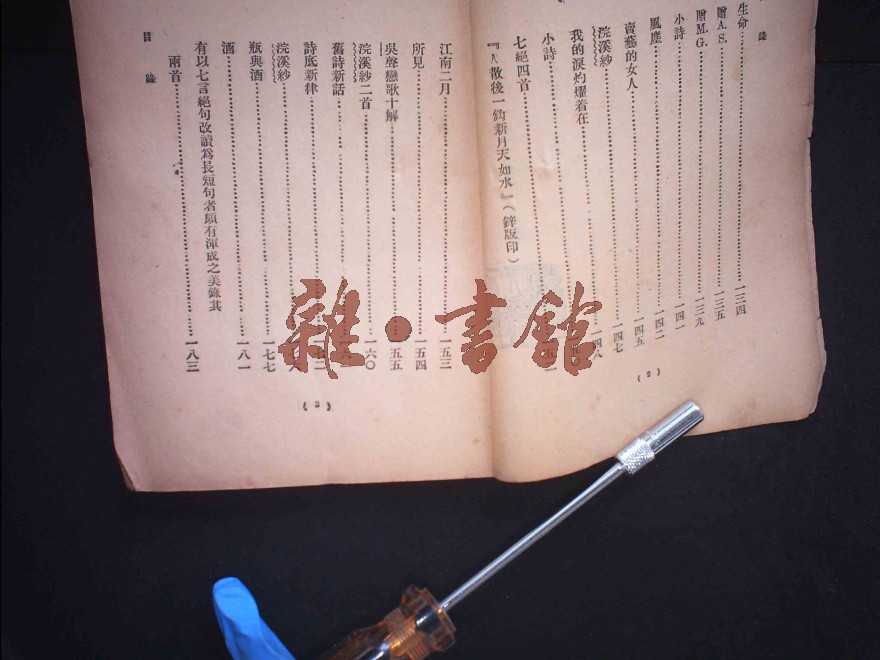 錄
生命 一三四
贈A.S. 一三五
贈M.G. 一三九
小詩 一四一
風塵 一四二
賣藝的女人 一四五
浣溪紗 一四七
我的淚灼燿着在 一四八
小詩
七絕四首
『人散後一鈎新月天如水』(鋅版印)
(2)
江南二月 一五三
所見 一五四
吳聲戀歌十解 一五五
浣溪紗二首 一六〇
舊詩新話
詩底新律
浣溪紗
瓶與酒 一七七
酒 一八一
有以七言絕句改讀爲長短句者頗有渾成之美錄其
兩首 一八三
目錄
(3)
雜·書館